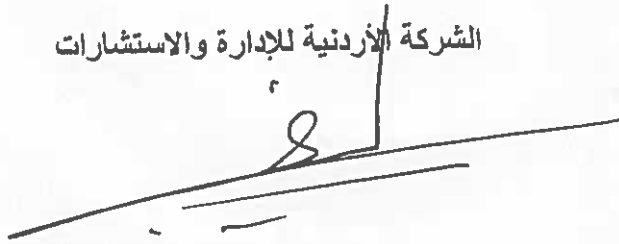 الشركة الأردنية للإدارة والاستشارات